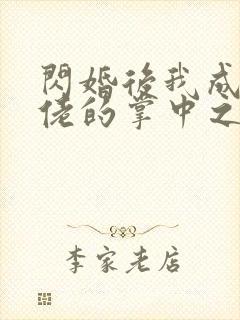 閃婚後我成
佬的掌中之
李家老店